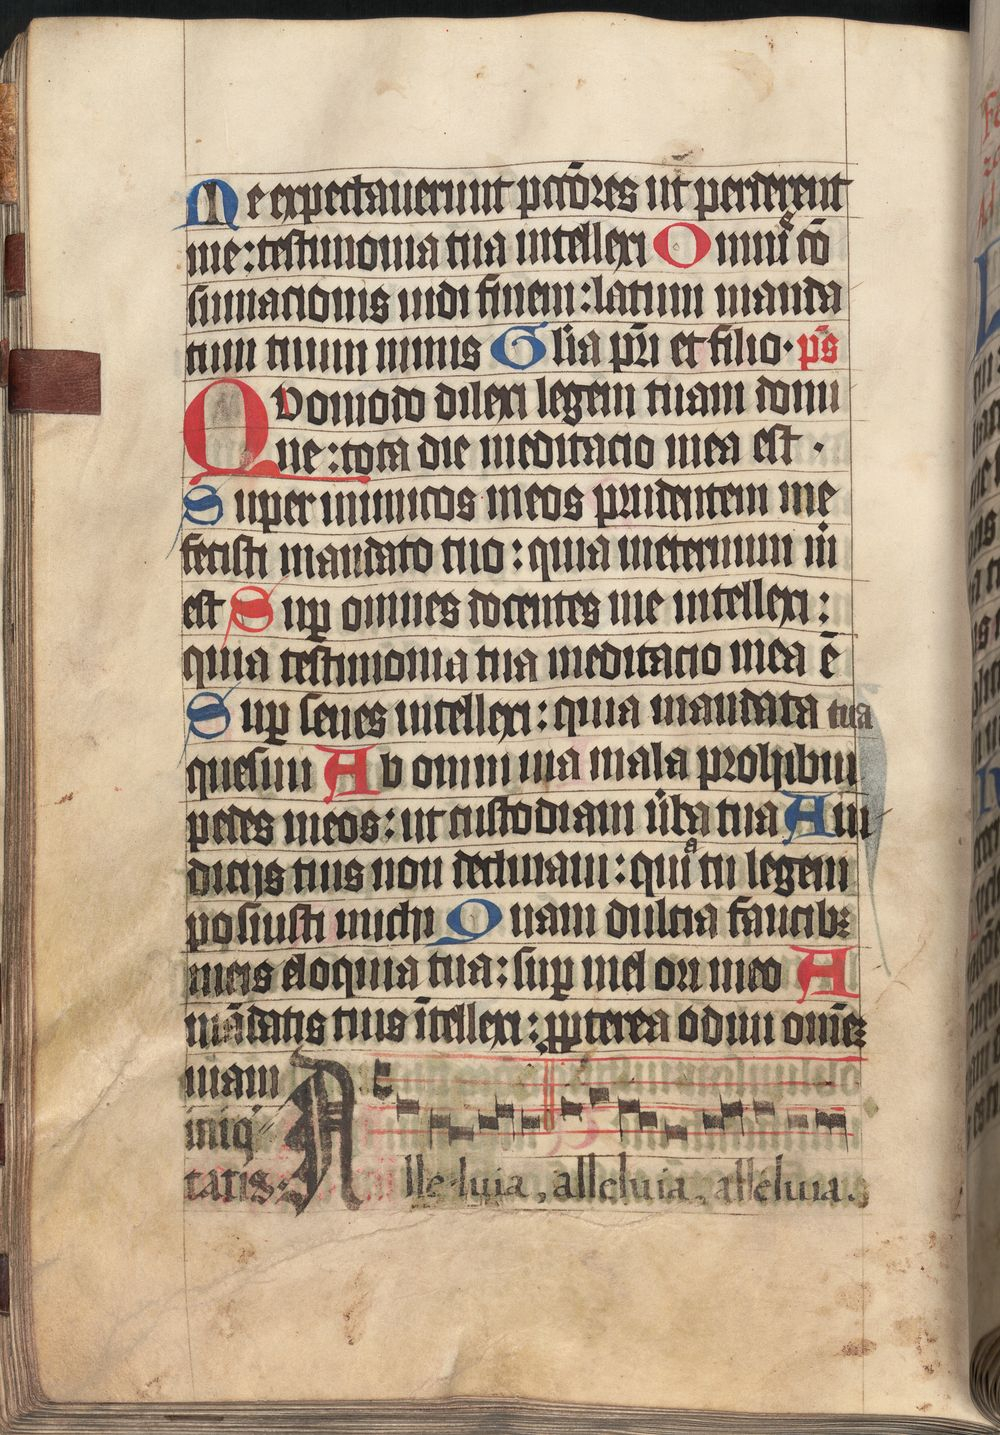 Me expectauerunt pctōres ut perderent
me: testimonia tua intellexi Omniͣ cō
sumacionis uidi finem: latum manda
tum tuum nimis Glia pr̄i et filio· p̄s
Quomodo dilexi legem tuam domi
ne: tota die meditacio mea est ·
Super inimicos meos prudentem me
fecisti mandato tuo: quia ineternum m̄
est Suꝑ omnes docentes me intellexi:
quia testimonia tua meditacio mea ē
Suꝑ senes intellexi: quia mandata tua
quesiui Ab omni uia mala prohibui
pedes meos: ut custodiam ūba tua A iu
dicijs tuis non declinaui: quiͣ tu legem
posuisti michi Quam dulcia faucibꝫ
meis eloquia tua: suꝑ mel ori meo A
mādatis tuis ītellexi: ꝓpterea odiui om̄eꝫ
uiam
iniq
tatis: Alleluia, alleluia, alleluia.